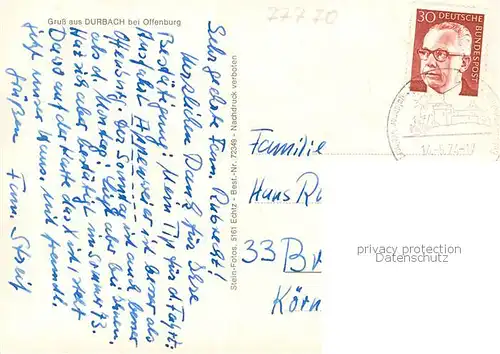 Gruß aus DURBACH bei Offenburg
77770
30 DEUTSCHE BUNDESPOST
Sehr geehrte Fam. Rubrecht!
Herzlichen Dank für Ihre
Bestätigung. Mein Tip für d. Fahrt:
Ausfahrt Appenweier ist besser als
Offenburg. Der Sonntag ist auch besser
als d. Montag. Liegt aber bei Ihnen.
Habe ich aber bestätigt im Sommer 73.
Dass auf der Karte das X ist, steht
unser Haus. Mit freundl.
Grüßen Fam. Streif
Stein-Fotos. 5161 Echtz - Best.-Nr. 72349 - Nachdruck verboten
Familie
Hans Ru
33 Br
Körn
privacy protection
Datenschutz